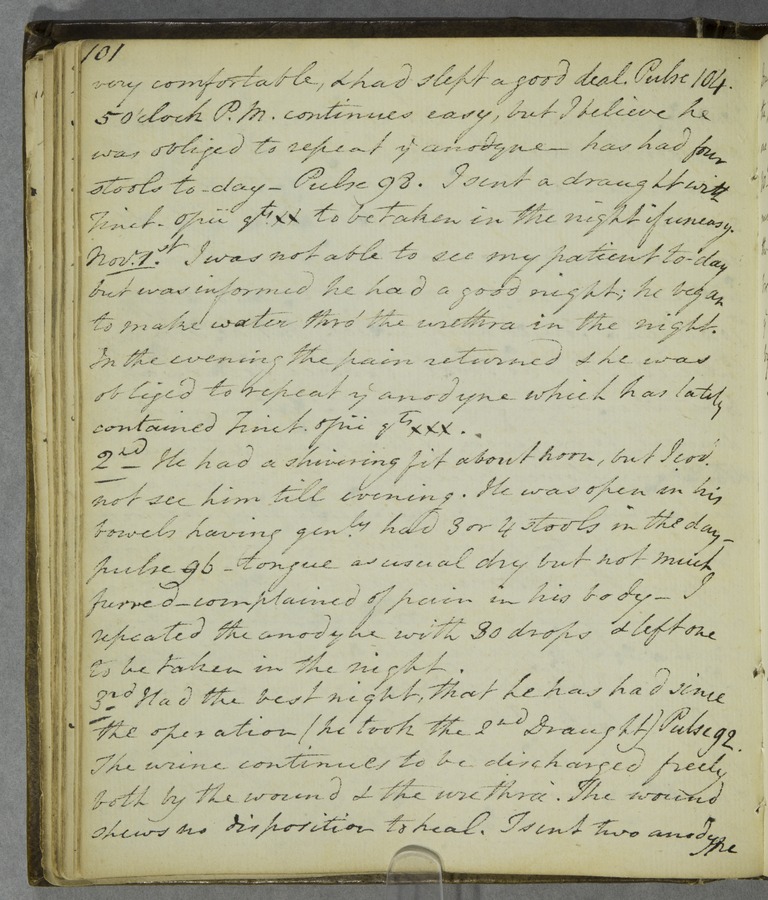 101
very comfortable, & had slept a good deal. Pulse 104.
5 o'clock P.M. continues easy, but I believe he
was obliged to repeat ye anodyne – has had four
stools to-day – Pulse 98. I sent a draught with
Tinct. opii gts xx to be taken in the night if uneasy.
Nov. 1.st I was not able to see my patient to-day
but was informed he had a good night; he began
to make water thro' the urethra in the night.
In the evening the pain returned & he was
obliged to repeat ye anodyne which has lately
contained Tinct. opii gts xxx.
2nd He had a shivering fit about noon, but I cod.
not see him till evening. He was open in his
bowels having genlly had 3 or 4 stools in the day –
pulse 96 – tongue as usual dry but not much
furred – complained of pain in his body – I
repeated the anodyne with 30 drops & left one
to be taken in the night.
3rd Had the best night, that he has had since
the operation (he took the 2nd Draught) Pulse 92.
The urine continues to be discharged freely
both by the wound & the urethra. The wound
shews no disposition to heal. I sent two anodyne